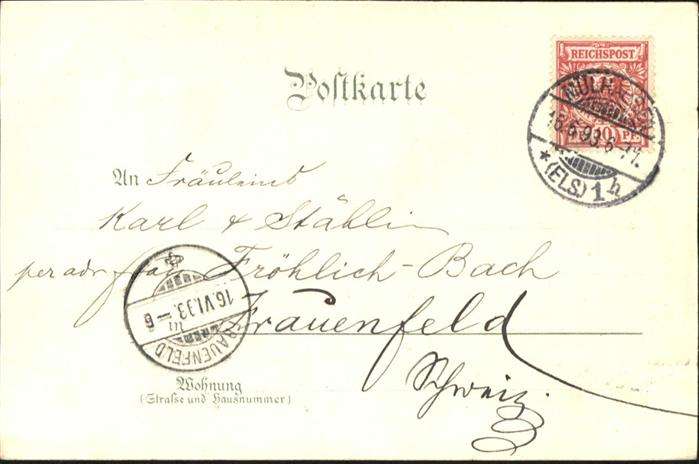 REICHSPOST
10 PF
MÜLHAUSEN
(ELS.) 1 h
Postkarte
An Fräuleins
Karl & Stähli
per adr Frau Fröhlich-Bach
Frauenfeld
Schweiz
16.VI.93.-6
FRAUENFELD
Wohnung
(Straße und Hausnummer)